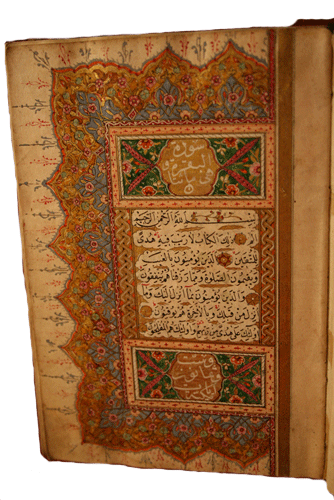 سورة
البقرة
بسم الله الرحمن الرحيم
الم ذلك الكتاب لا ريب فيه هدى
للمتقين الذين يؤمنون بالغيب
ويقيمون الصلوة ومما رزقناهم ينفقون
والذين يؤمنون بما انزل اليك وما
انزل من قبلك وبالاخرة هم يوقنون
اولئك على هدى من ربهم واولئك هم المفلحون